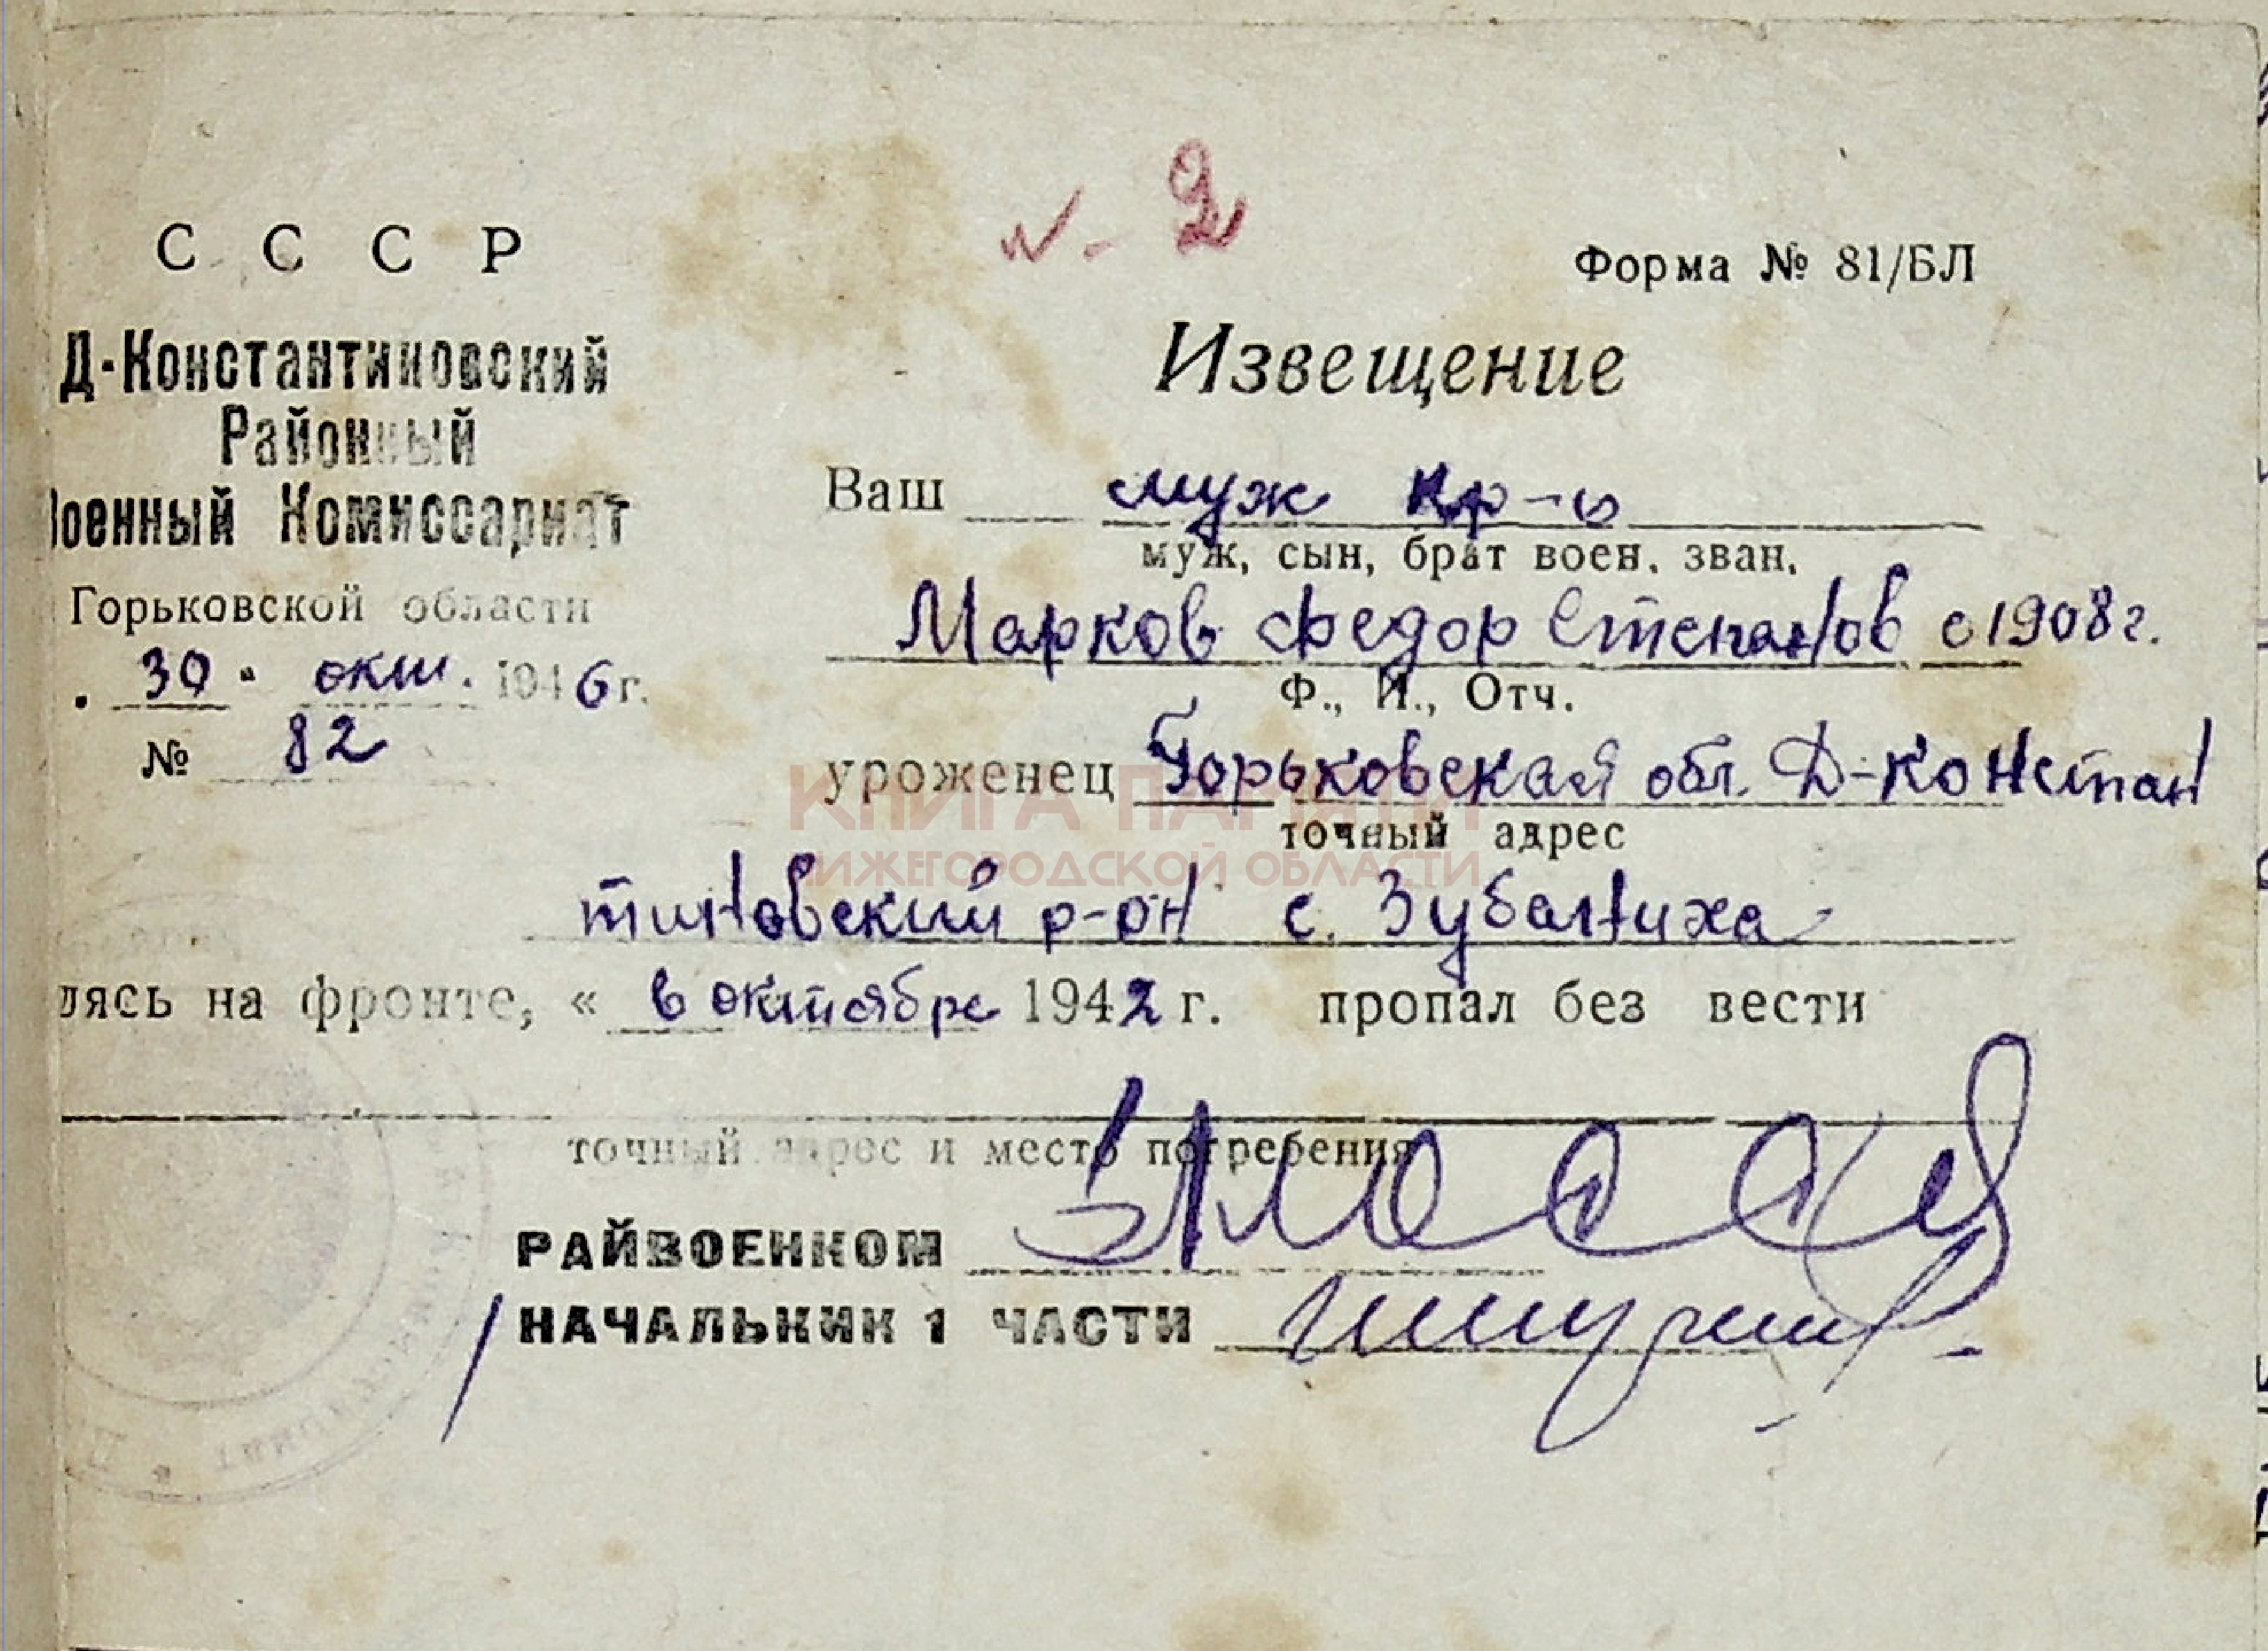 № 2
С С С Р
Форма № 81/БЛ
Д-Константиновский
Районный
Военный Комиссариат
Горьковской области
. 30 " окт. 1946 г.
№ 82
Извещение
Ваш муж кр-ц
муж, сын, брат воен. зван.
Марков Федор Степанов с 1908 г.
Ф., И., Отч.
уроженец Горьковская обл. Д-Констан
точный адрес
тиновский р-он с. Зубаниха
лясь на фронте, « в октябре 1942 г. пропал без вести
точный адрес и место погребения
РАЙВОЕНКОМ
НАЧАЛЬНИК 1 ЧАСТИ
КНИГА ПАМЯТИ
НИЖЕГОРОДСКОЙ ОБЛАСТИ